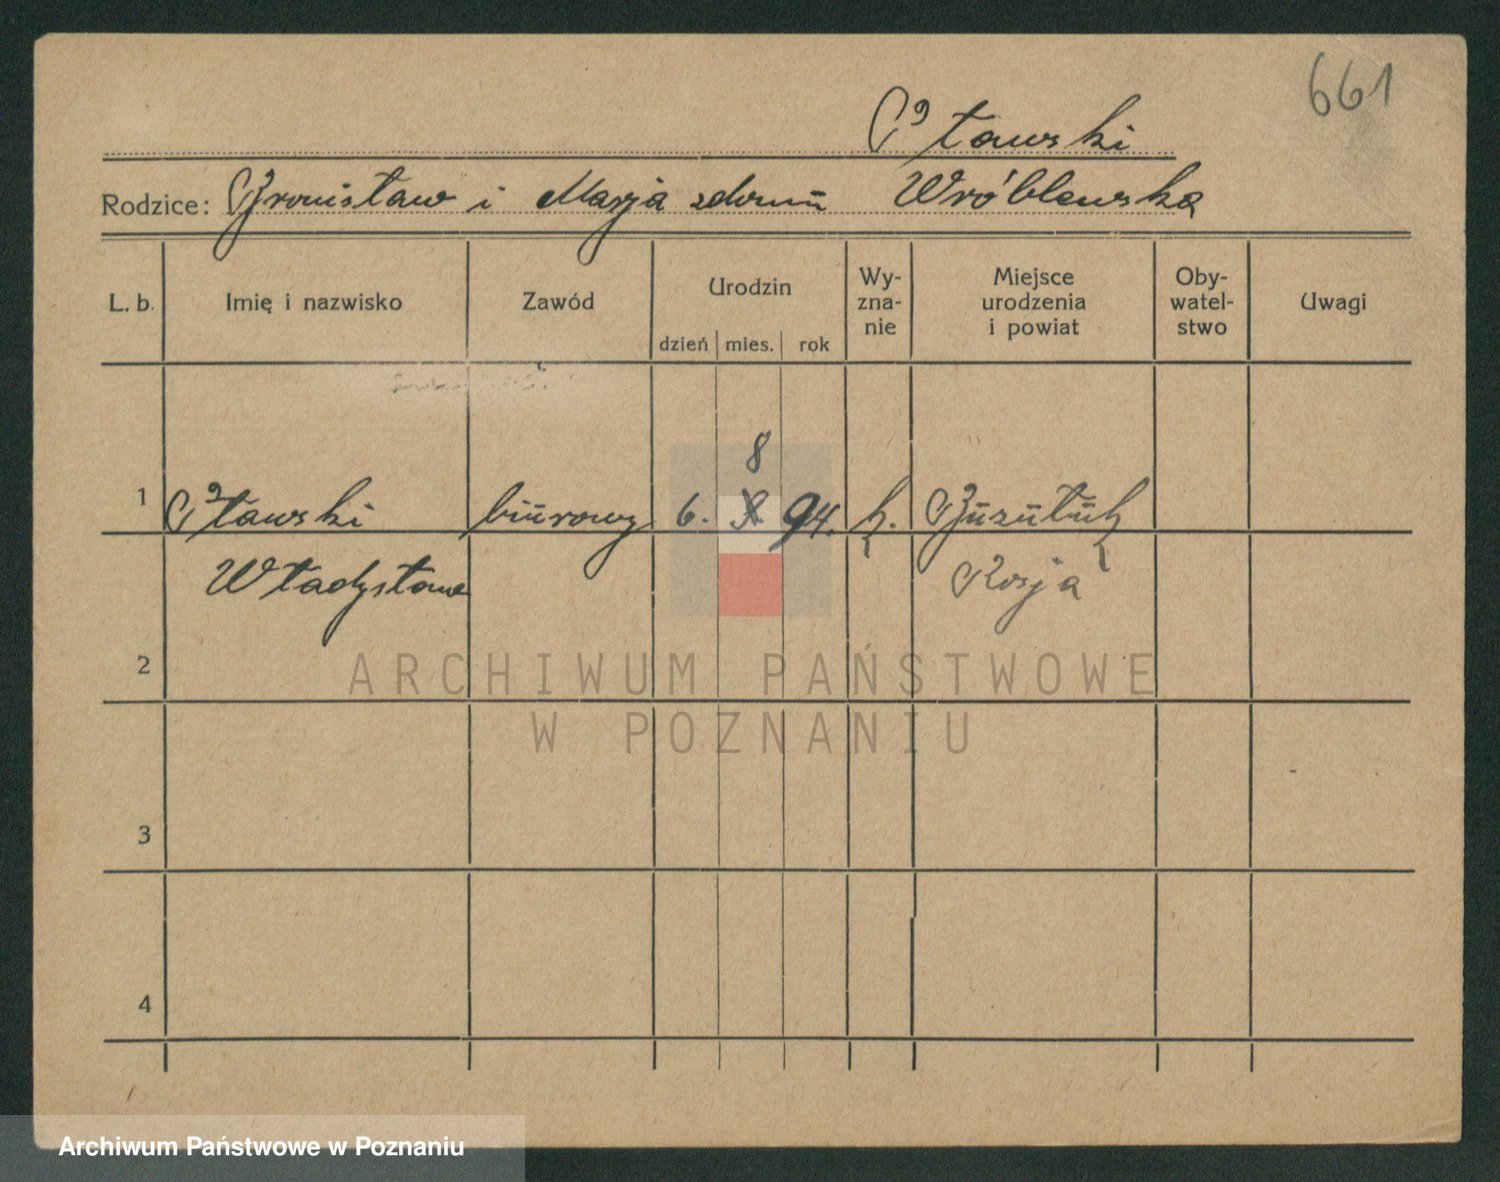 661
Pławski
Rodzice: Bronisław i Marja z domu Wróblewska
L. b. Imię i nazwisko Zawód Urodzin dzień mies. rok Wy-
zna-
nie Miejsce
urodzenia
i powiat Oby-
watel-
stwo Uwagi
8
1 Pławski biurowy 6. 94. k. Buzułuk
Władysław Rosja
2
3
4
ARCHIWUM PAŃSTWOWE
W POZNANIU
Archiwum Państwowe w Poznaniu